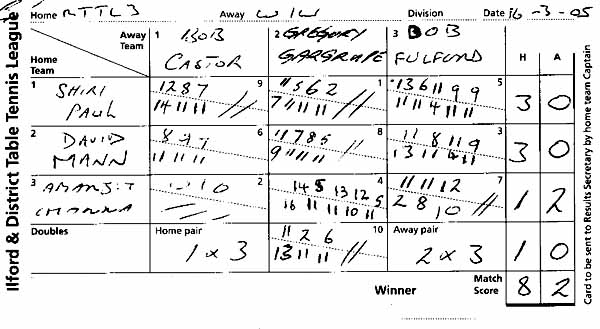 Ilford & District Table Tennis League
Home RTTL3 Away WIW Division Date 16-3-05
Away Team 1 BOB CASTOR 2 GREGORY GARGRAVE 3 BOB FULFORD H A
Home Team
1 SHIRI PAUL
12 8 7 9
14 11 11
11 5 6 2 1
7 11 11 11
13 6 11 9 9 5
11 11 4 11 11
3 0
2 DAVID MANN
6
11 11 11
11 7 8 5 8
9 11 11 11
11 8 11 9 3
13 11 4 11
3 0
3 AMARJIT CHANNA
2
14 5 13 12 5 4
16 11 11 10 11
11 11 12 7
2 8 10
1 2
Doubles Home pair 1 x 3
11 2 6 10
13 11 11
Away pair 2 x 3
1 0
Winner Match Score 8 2
Card to be sent to Results Secretary by home team Captain